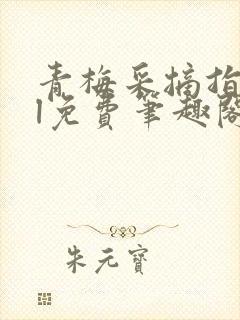 青梅采摘指
l免费笔趣阁
朱元寶